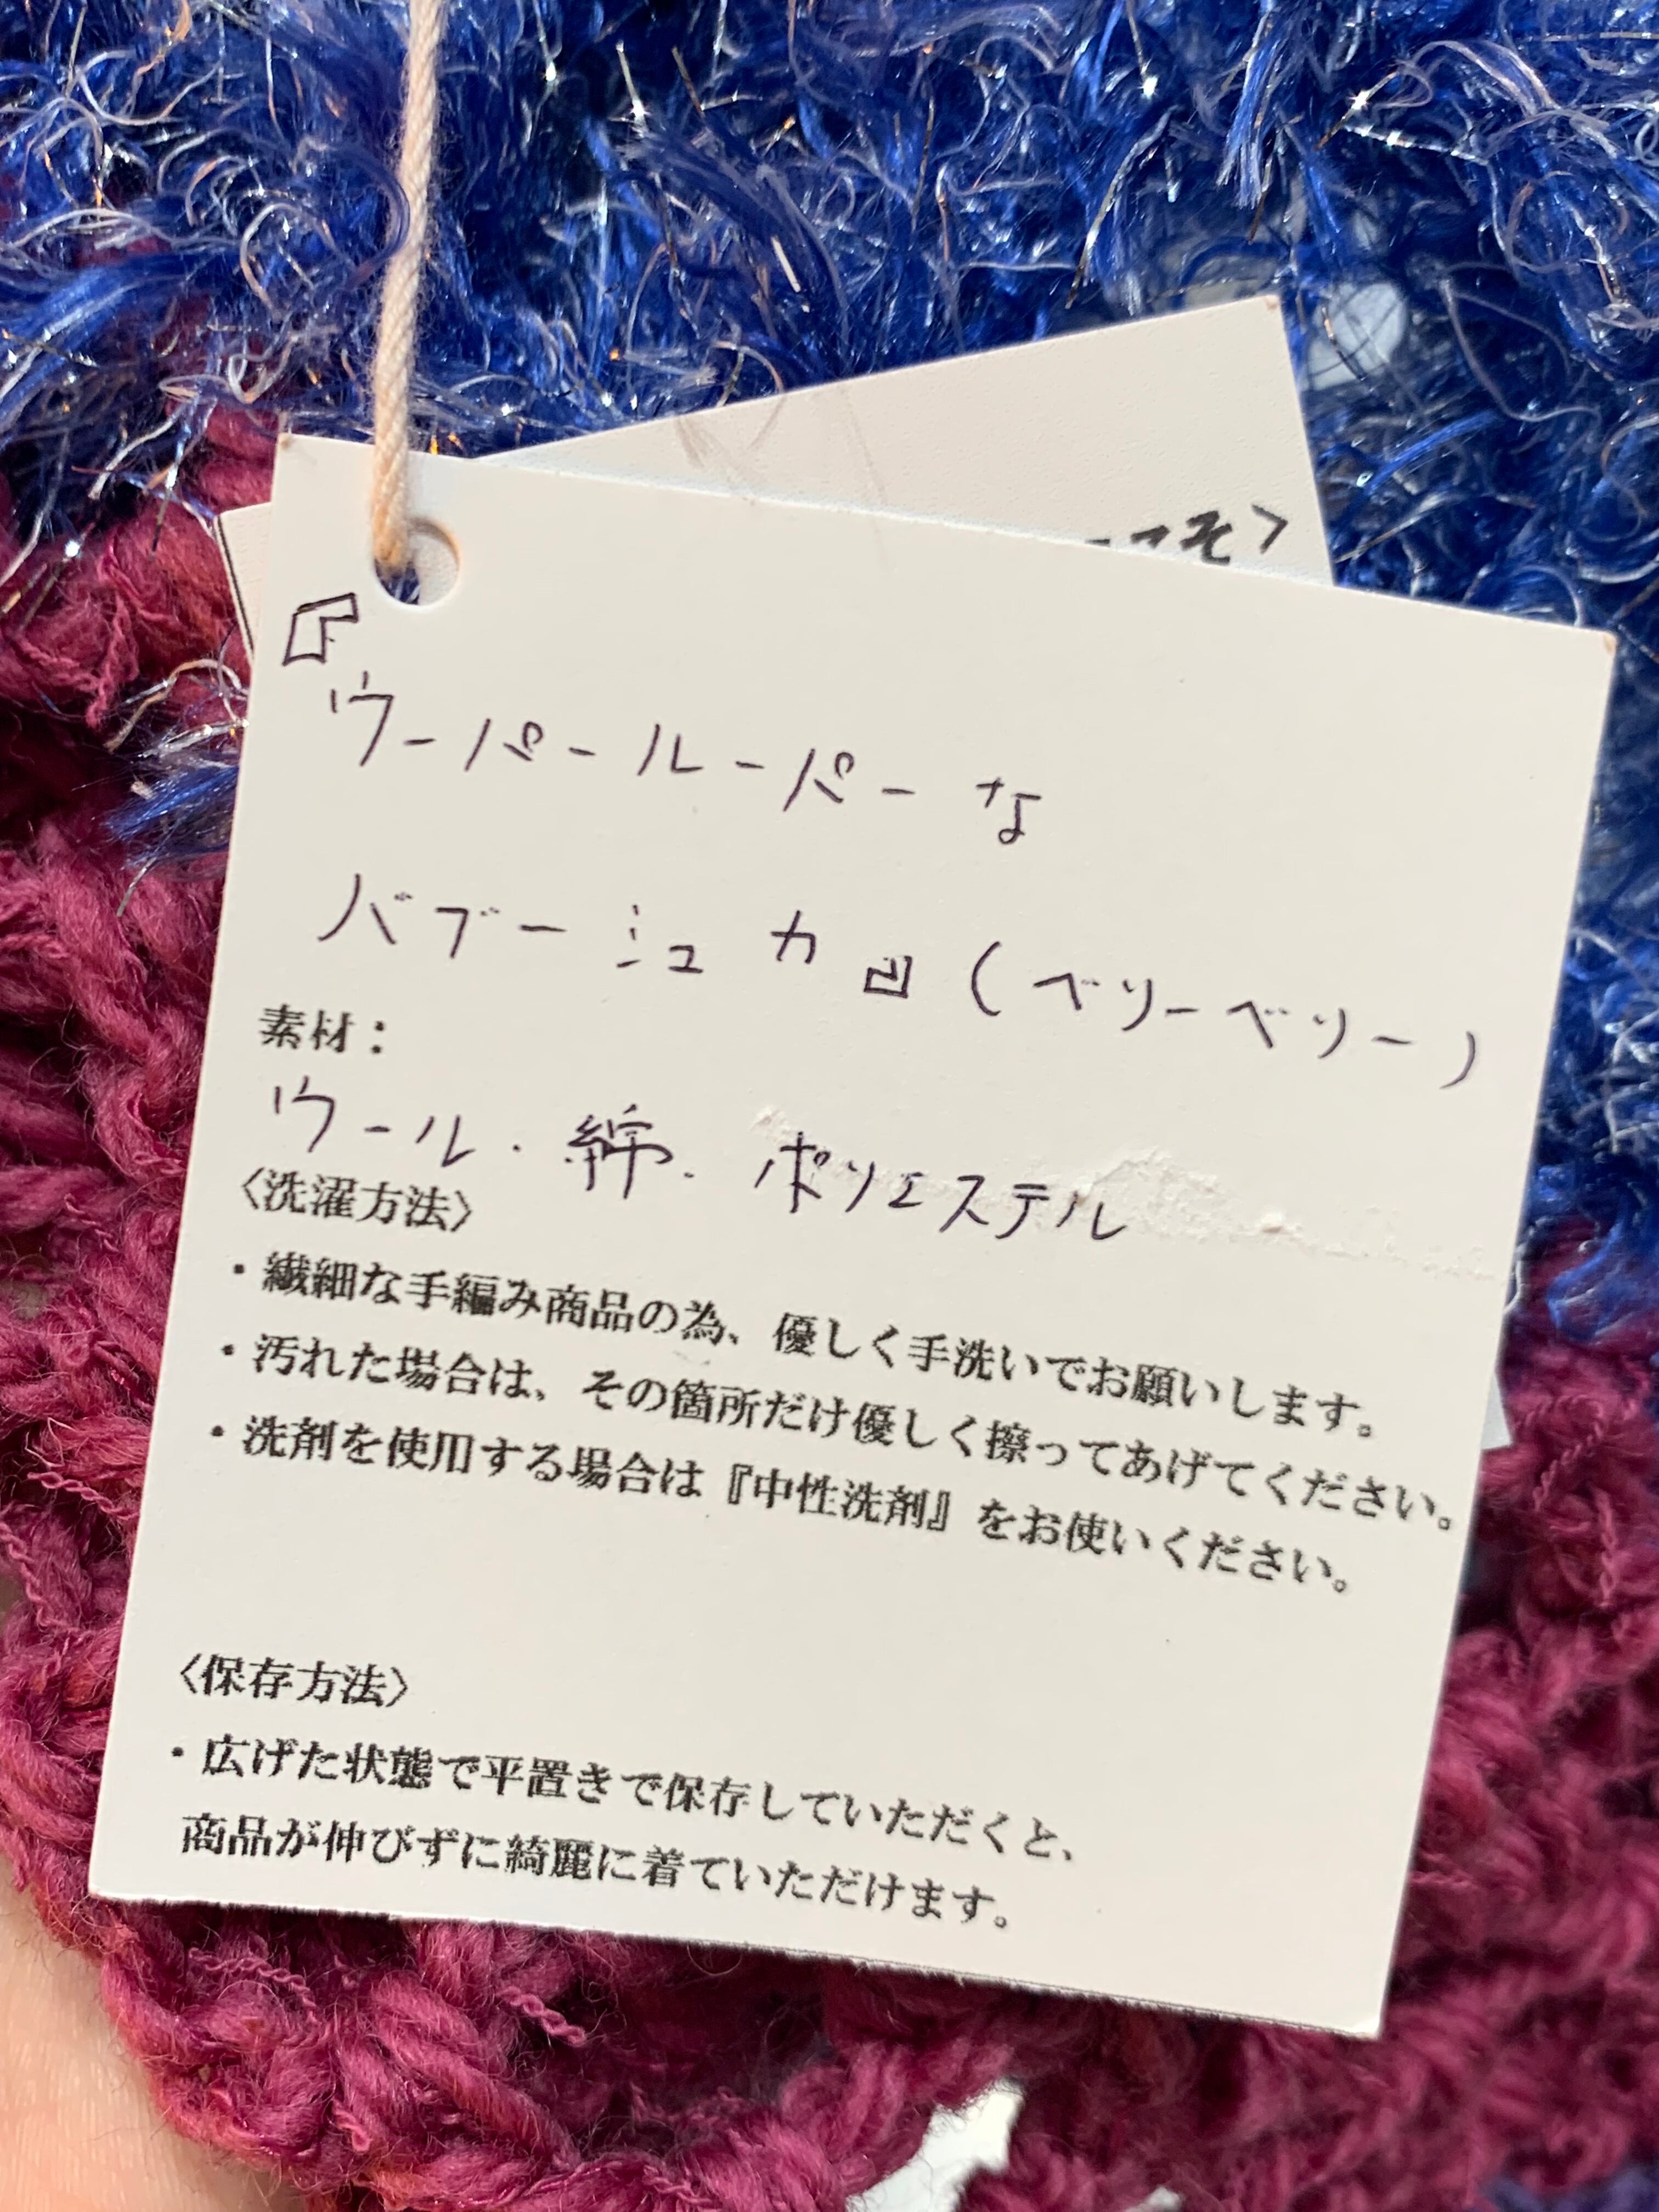 『ウーパールーパーな
バブーシュカ』(ベリーベリー)
素材：
ウール・綿・ポリエステル
〈洗濯方法〉
・繊細な手編み商品の為、優しく手洗いでお願いします。
・汚れた場合は、その箇所だけ優しく擦ってあげてください。
・洗剤を使用する場合は『中性洗剤』をお使いください。
〈保存方法〉
・広げた状態で平置きで保存していただくと、
商品が伸びずに綺麗に着ていただけます。